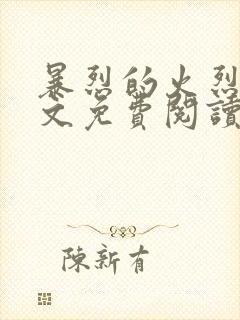 暴烈的火烈
文免費閱讀
陳新有